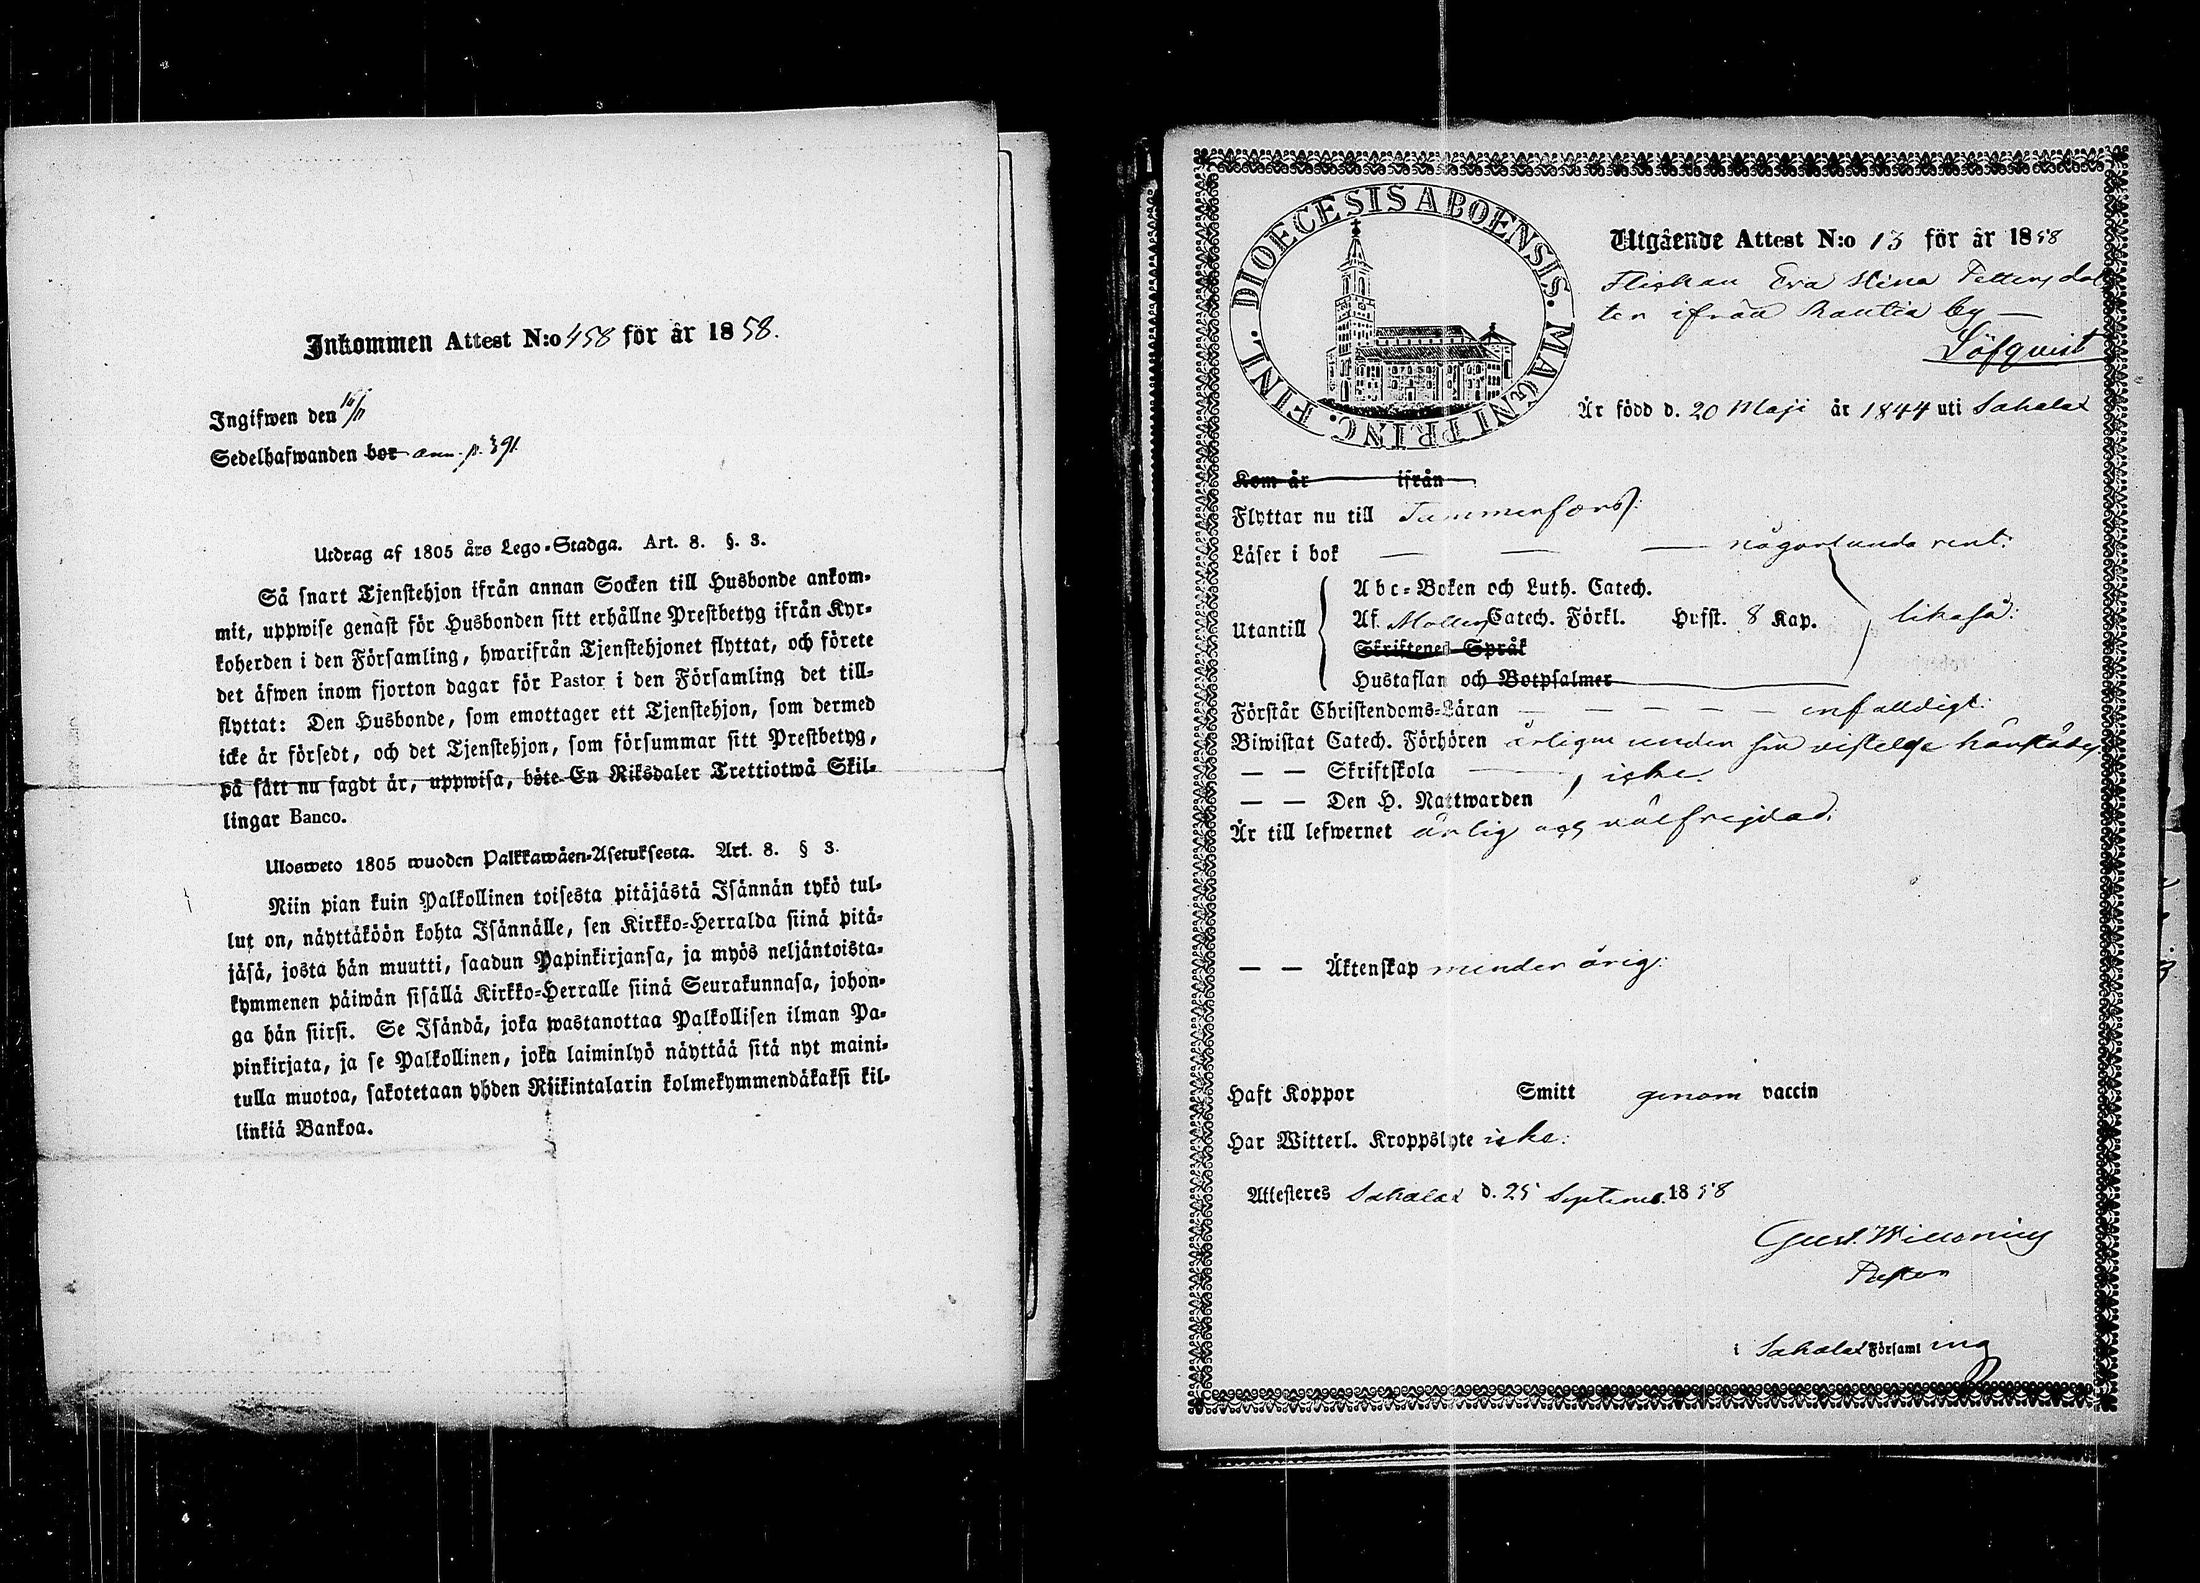 Inkommen Attest N:o 458 för år 1858.
Ingifwen den 10/11
Sedelhafwanden bor ann. p. 391
Utdrag af 1805 års Lego-Stadga. Art. 8. §. 3.
Så snart Tjenstehjon ifrån annan Socken till Husbonde ankom-
mit, uppwise genast för Husbonden sitt erhållne Prestbetyg ifrån Kyr-
koherden i den Församling, hwarifrån Tjenstehjonet flyttat, och förete
det äfwen inom fjorton dagar för Pastor i den Församling det till-
flyttat: Den Husbonde, som emottager ett Tjenstehjon, som dermed
icke är försedt, och det Tjenstehjon, som försummar sitt Prestbetyg,
på sätt nu sagdt är, uppwisa, böte En Riksdaler Trettiotwå Skil-
lingar Banco.
Ulosweto 1805 wuoden Palkkawäen-Asetuksesta. Art. 8. § 3.
Niin pian kuin Palkollinen toisesta pitäjästä Isännän tykö tul-
lut on, näyttäköön kohta Isännälle, sen Kirkko-Herralda siinä pitä-
jäsä, josta hän muutti, saadun Papinkirjansa, ja myös neljäntoista-
kymmenen päiwän sisällä Kirkko-Herralle siinä Seurakunnasa, johon-
ga hän siirsi. Se Isändä, joka wastanottaa Palkollisen ilman Pa-
pinkirjata, ja se Palkollinen, joka laiminlyö näyttää sitä nyt maini-
tulla muotoa, sakotetaan yhden Riikintalarin kolmekymmendäkaksi kil-
linkiä Bankoa.
DIOECESIS ABOENSIS. MAGNI PRINC. FINL.
Utgående Attest N:o 13 för år 1858
Flickan Eva Stina Pettersdot
ter ifrån Rautia by —
Löfqvist
Är född d. 20 Maji år 1844 uti Sahalax
Kom år ifrån
Flyttar nu till Tammerfors:
Läser i bok — — — någorlunda rent:
Abc-Boken och Luth. Catech.
Utantill Af Möllers Catech. Förkl. Hufst. 8 Kap. likaså:
Skriftenes Språk
Hustaflan och Botpsalmer
Förstår Christendoms-Läran — — — — — enfalldigt:
Biwistat Catech. Förhören årligen under sin vistelse härstädes
— — Skriftskola — , icke
— — Den H. Nattwarden
Är till lefwernet ärlig och välfrejdad.
— — Äktenskap minderårig:
Haft Koppor Smitt genom vaccin
Har Witterl. Kroppslyte icke:
Attesteres Sahalax d. 25 Septemb. 1858
Gust.
Pastor
i Sahalax Församling